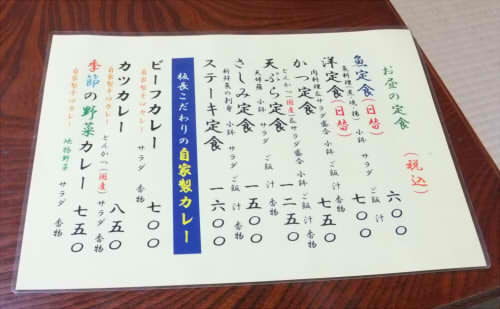 お昼の定食
(税込)
魚定食(日替) 六〇〇
魚料理(煮、焼、揚) 小鉢 ご飯 汁 香物
洋定食(日替) 七〇〇
肉料理&サラダ盛合 小鉢 ご飯 汁 香物
かつ定食 七五〇
とんかつ(国産)&サラダ盛合 小鉢 ご飯 汁 香物
天ぷら定食 一二五〇
天ぷら 小鉢 サラダ ご飯 汁 香物
さしみ定食 一五〇〇
新鮮魚の刺身 小鉢 サラダ ご飯 汁 香物
ステーキ定食 一六〇〇
小鉢 サラダ ご飯 汁 香物
板長こだわりの自家製カレー
ビーフカレー 七〇〇
自家製手作カレー サラダ 香物
カツカレー 八五〇
自家製手作カレー とんかつ(国産) サラダ 香物
季節の野菜カレー 七五〇
自家製手作カレー 地物野菜 サラダ 香物